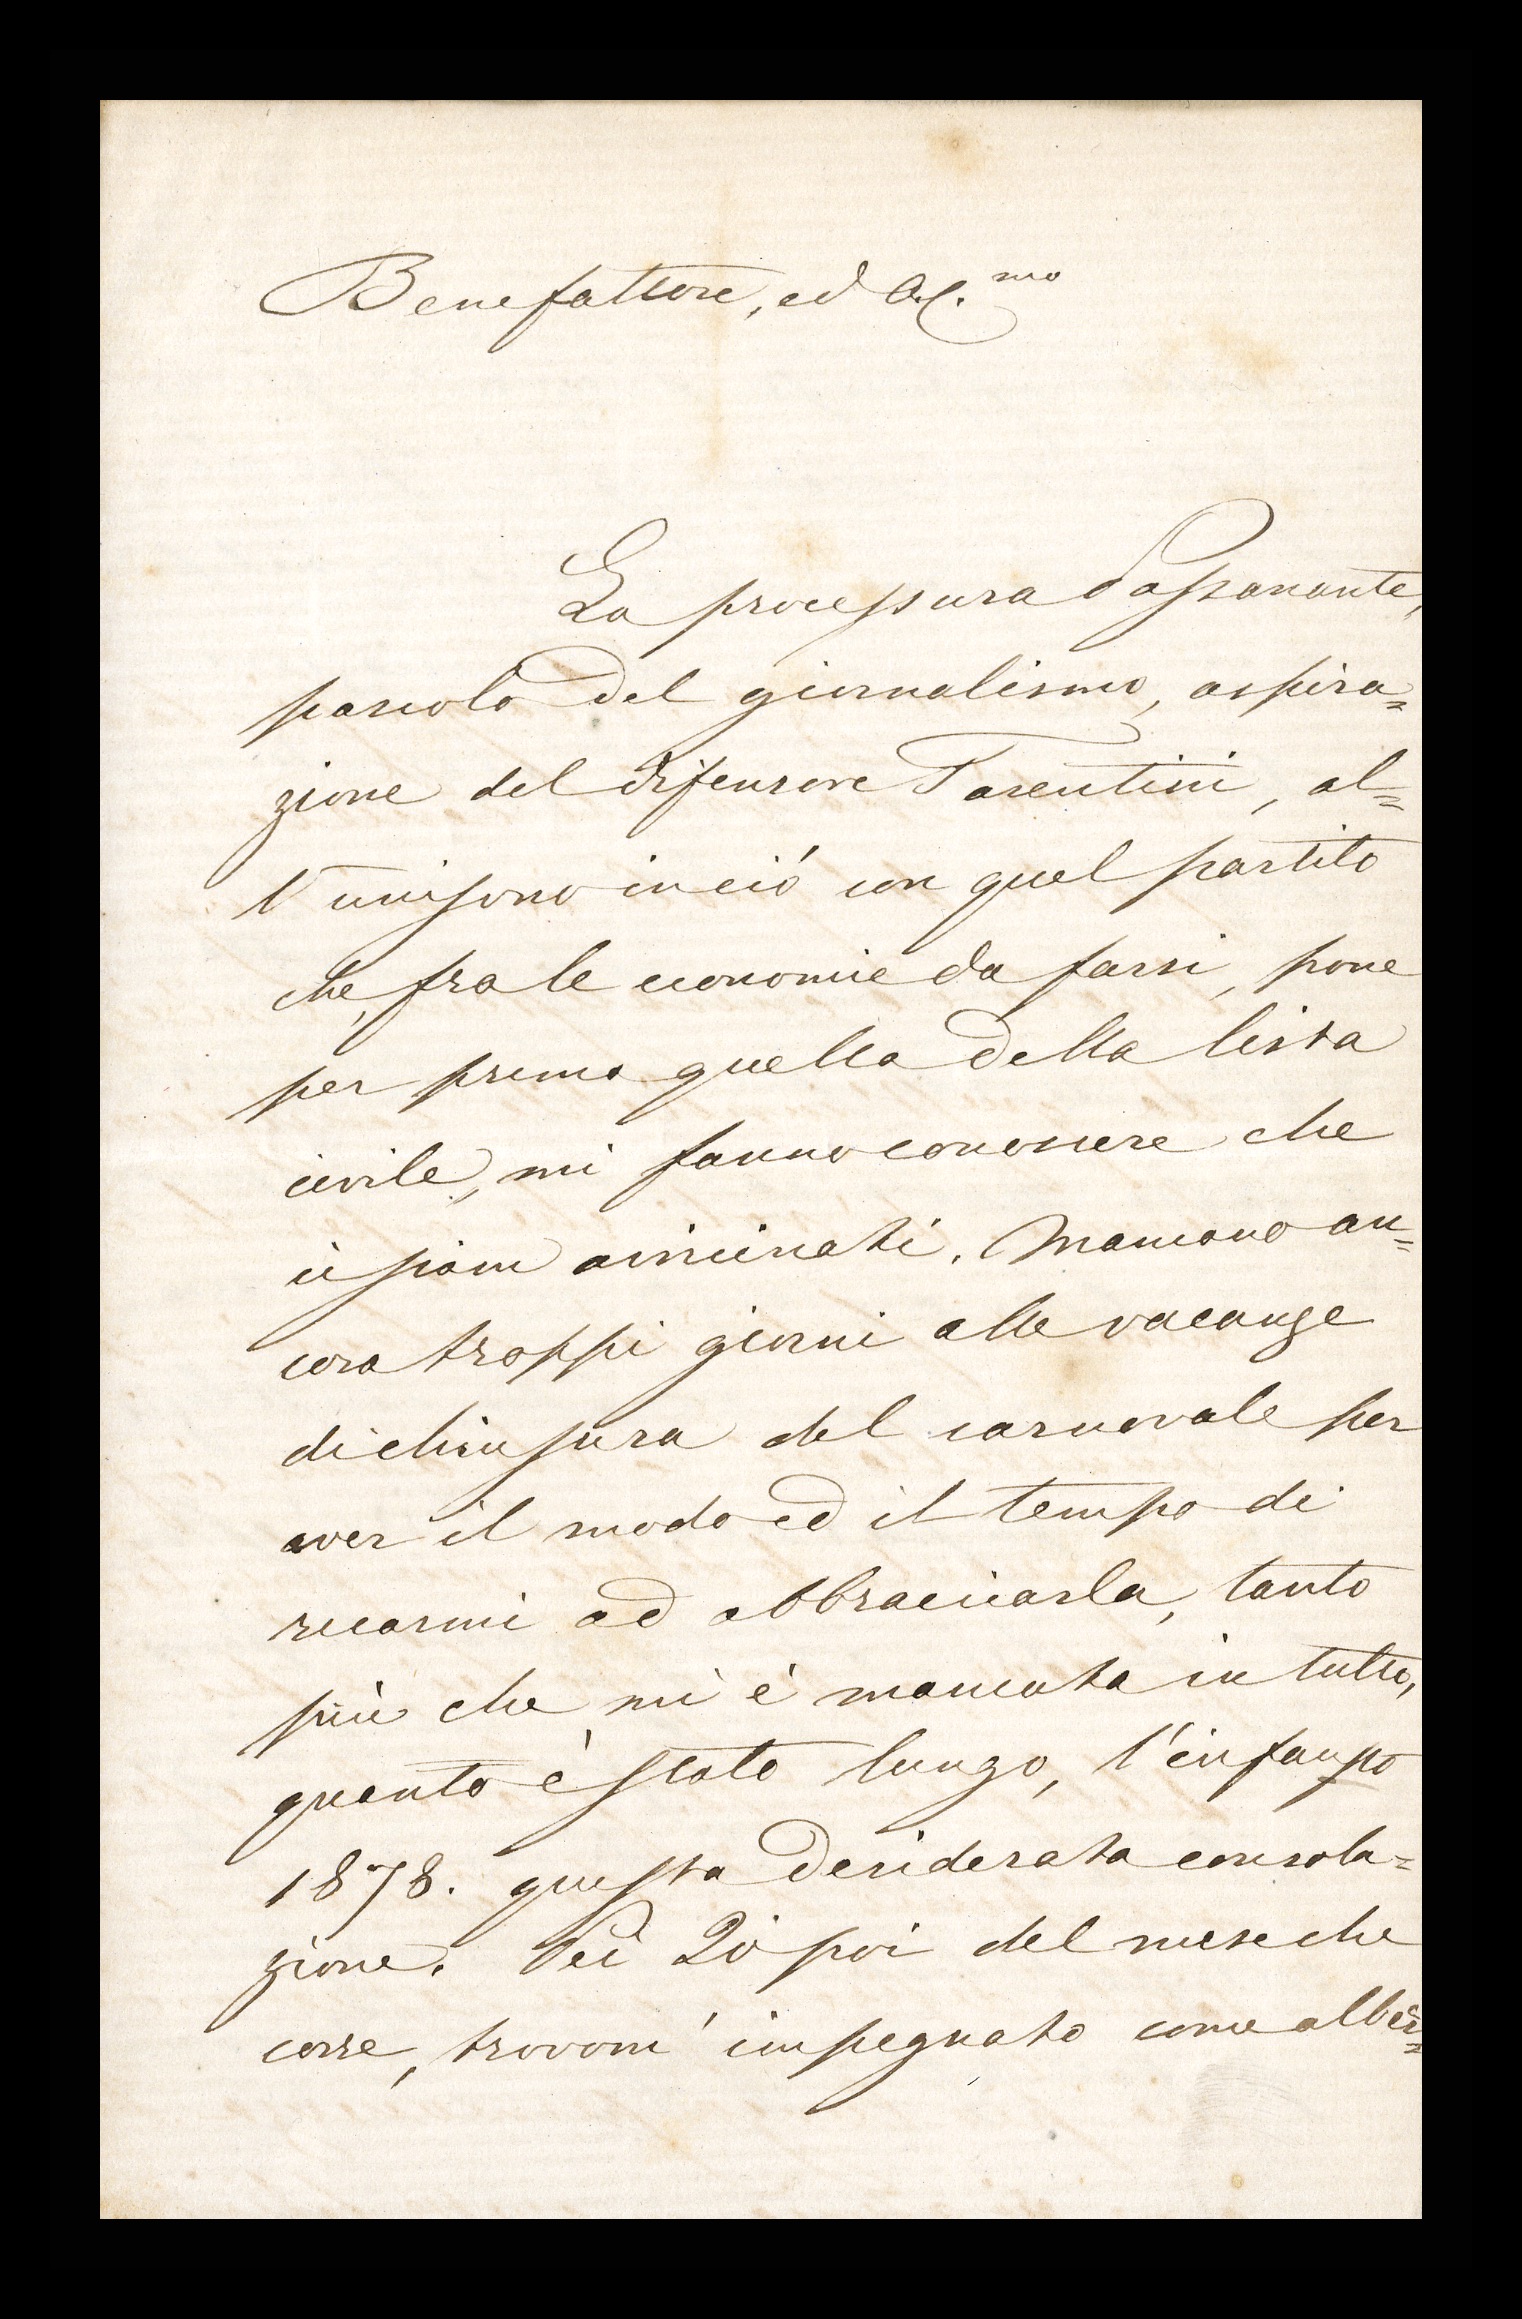 Benefattore, ed A.C.mo
La processura Passanante,
pascolo del giornalismo, aspira=
zione del difensore Tarentini, al=
l'unisono in ciò con quel partito
che, fra le economie da farsi, pone
per prima quella della lista
civile, mi fanno conoscere che
ci siam avvicinati. Mancano an=
cora troppi giorni alle vacanze
di chiusura del carnevale per
aver il modo ed il tempo di
recarmi ad abbracciarla, tanto
più che mi è mancata in tutto,
quanto è stato lungo, l'infausto
1878. questa desiderata consola=
zione. Pei 20 poi del mese che
corre, trovom' impegnato come alber=